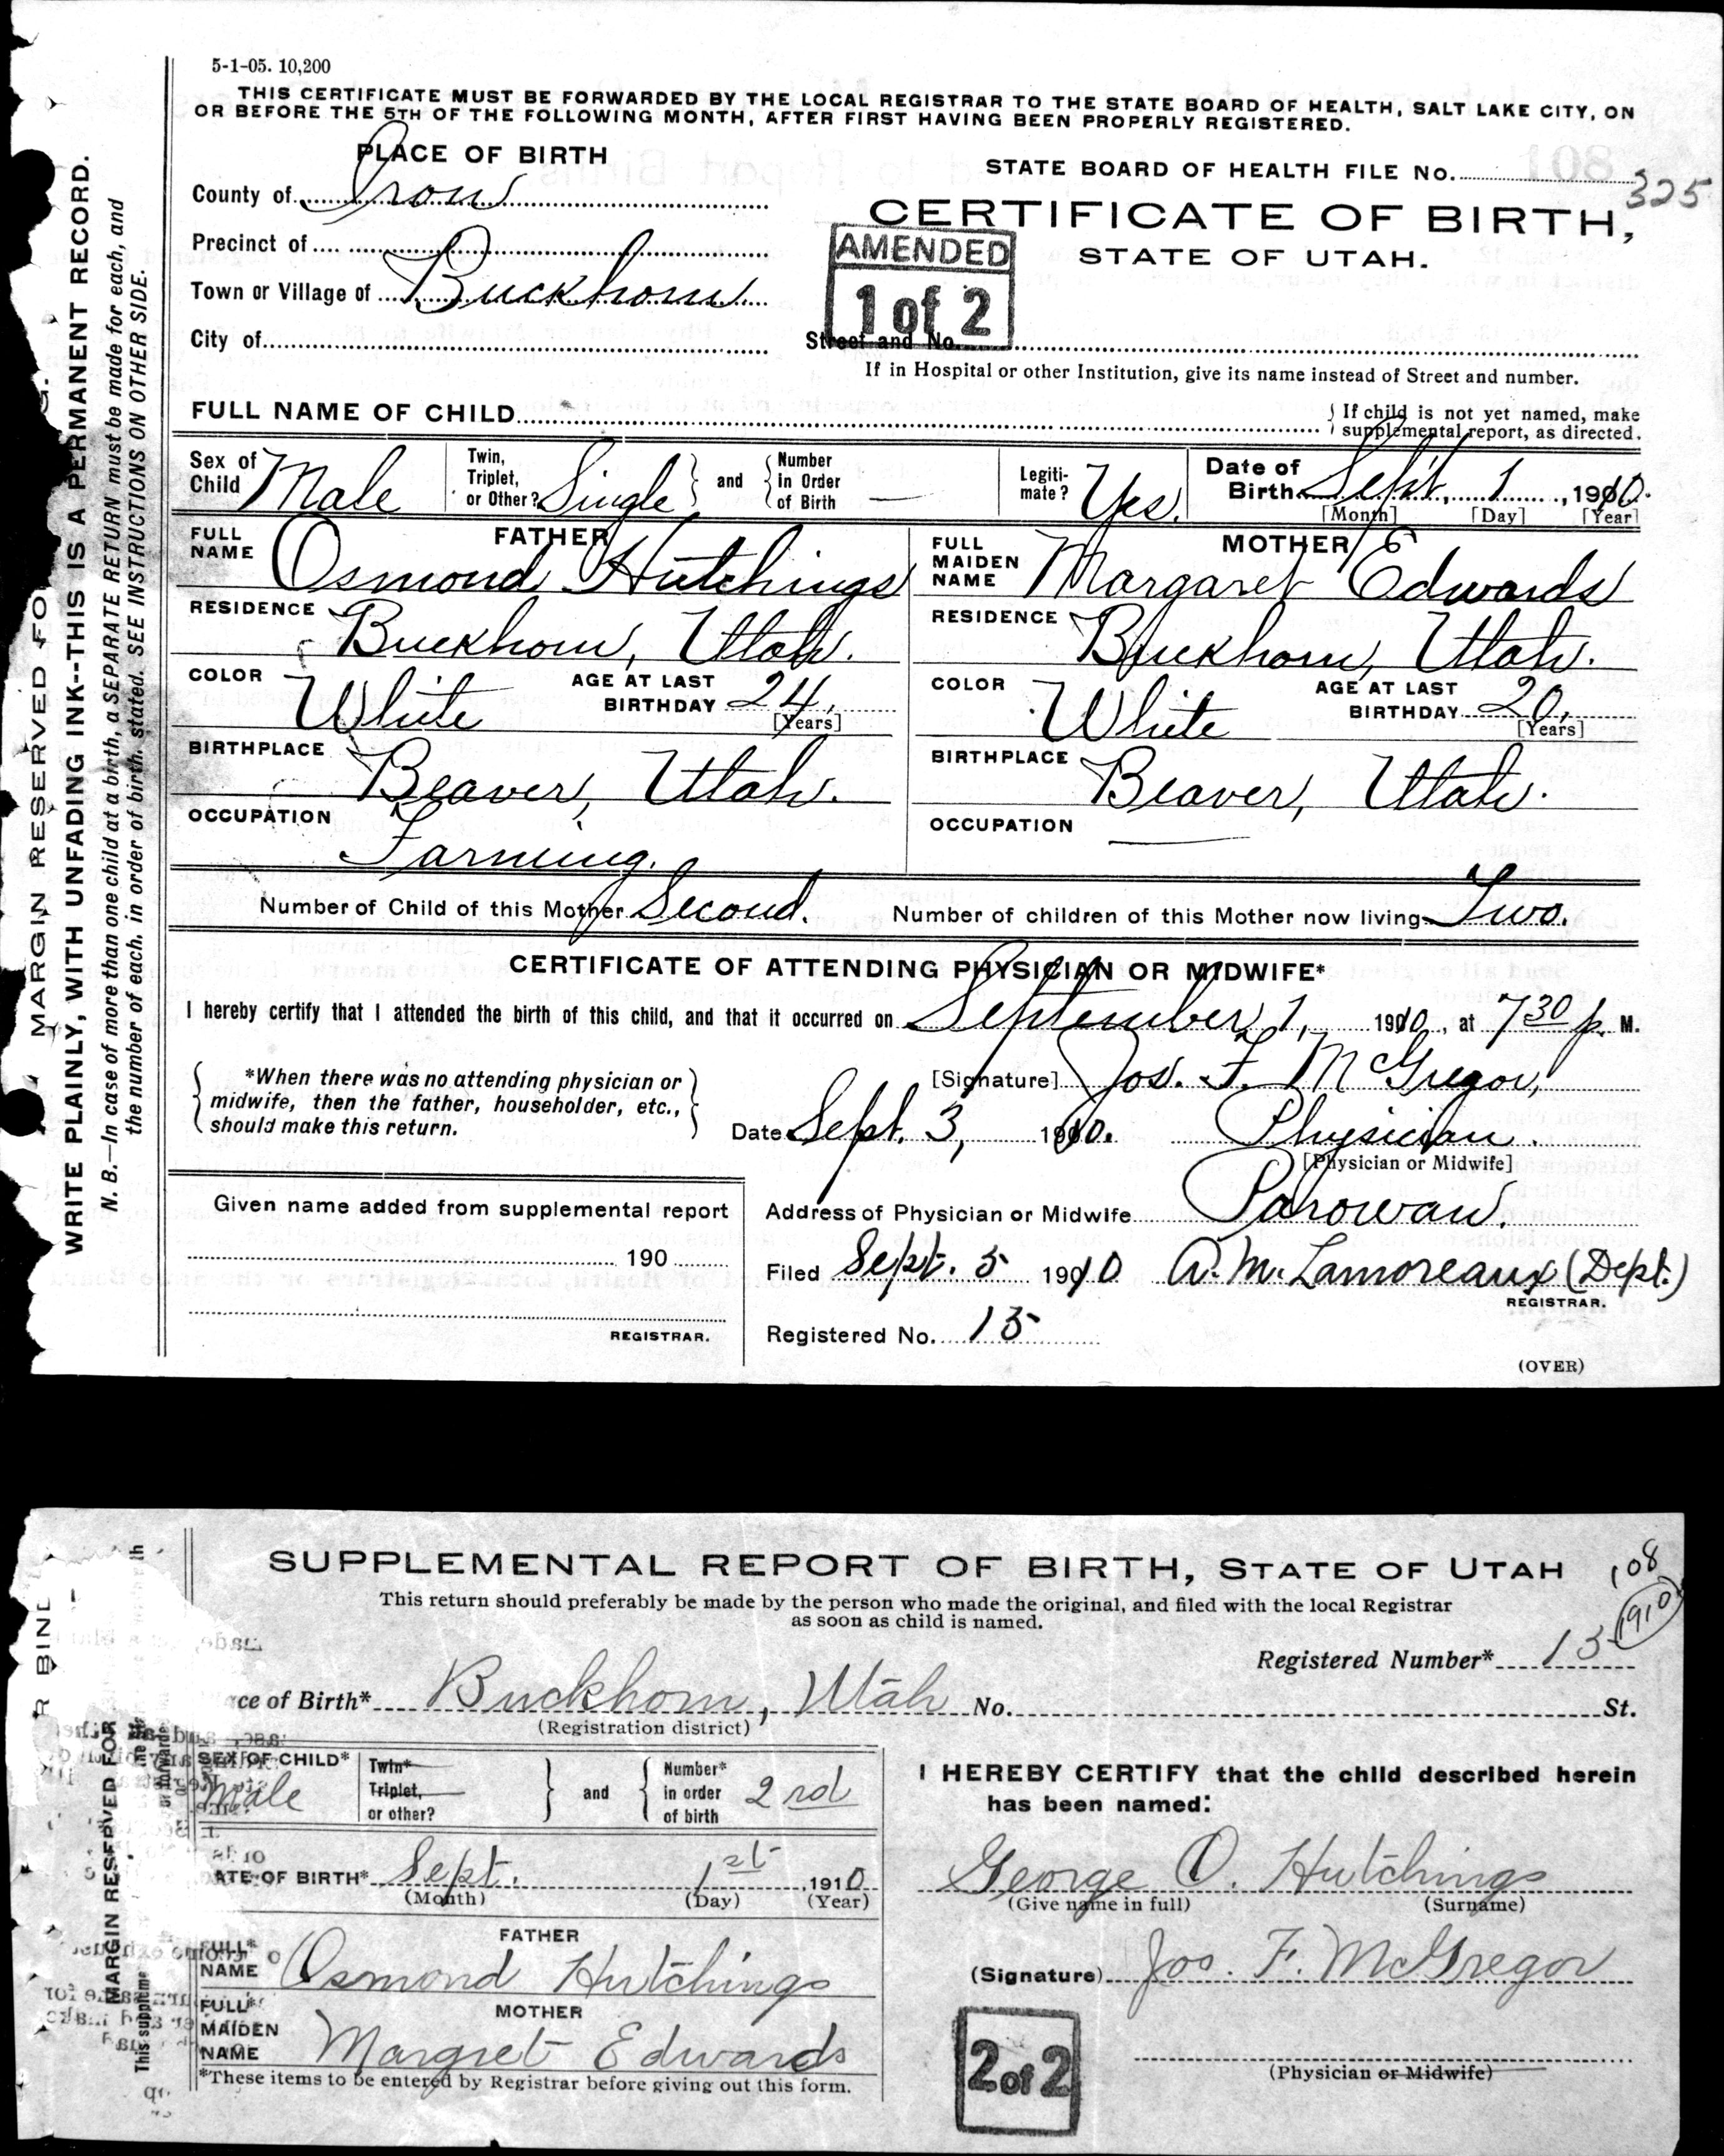 5-1-05. 10,200
THIS CERTIFICATE MUST BE FORWARDED BY THE LOCAL REGISTRAR TO THE STATE BOARD OF HEALTH, SALT LAKE CITY, ON
OR BEFORE THE 5TH OF THE FOLLOWING MONTH, AFTER FIRST HAVING BEEN PROPERLY REGISTERED.
PLACE OF BIRTH
STATE BOARD OF HEALTH FILE No. 108 325
County of Iron
CERTIFICATE OF BIRTH,
STATE OF UTAH.
AMENDED
1 of 2
Precinct of
Town or Village of Buckhorn
City of Street and No.
If in Hospital or other Institution, give its name instead of Street and number.
FULL NAME OF CHILD
If child is not yet named, make
supplemental report, as directed.
Sex of Child Male
Twin, Triplet, or Other? Single and Number in Order of Birth —
Legiti-mate? Yes.
Date of Birth Sept. 1, 1910.
[Month] [Day] [Year]
FATHER
FULL NAME Osmond Hutchings
RESIDENCE Buckhorn, Utah.
COLOR White AGE AT LAST BIRTHDAY 24,
[Years]
BIRTHPLACE Beaver, Utah.
OCCUPATION Farming.
MOTHER
FULL MAIDEN NAME Margaret Edwards
RESIDENCE Buckhorn, Utah.
COLOR White AGE AT LAST BIRTHDAY 20,
[Years]
BIRTHPLACE Beaver, Utah.
OCCUPATION —
Number of Child of this Mother Second. Number of children of this Mother now living Two.
CERTIFICATE OF ATTENDING PHYSICIAN OR MIDWIFE*
I hereby certify that I attended the birth of this child, and that it occurred on September 1, 1910, at 7 30 p. M.
*When there was no attending physician or
midwife, then the father, householder, etc.,
should make this return.
[Signature] Jos. F. McGregor,
Date Sept. 3, 1910. Physician.
[Physician or Midwife]
Given name added from supplemental report
190
REGISTRAR.
Address of Physician or Midwife Parowan.
Filed Sept. 5 1910 A. M. Lamoreaux (Dept.)
REGISTRAR.
Registered No. 15
(OVER)
MARGIN RESERVED FO
WRITE PLAINLY, WITH UNFADING INK--THIS IS A PERMANENT RECORD.
N. B.—In case of more than one child at a birth, a SEPARATE RETURN must be made for each, and
the number of each, in order of birth, stated. SEE INSTRUCTIONS ON OTHER SIDE.
SUPPLEMENTAL REPORT OF BIRTH, STATE OF UTAH
108
1910
This return should preferably be made by the person who made the original, and filed with the local Registrar
as soon as child is named.
Registered Number* 15
ce of Birth* Buckhorn, Utah No. St.
(Registration district)
SEX OF CHILD* Male
Twin* Triplet, or other? and Number* in order of birth 2 rd
ATE OF BIRTH* Sept. 1 st 1910
(Month) (Day) (Year)
FATHER
FULL* NAME Osmond Hutchings
MOTHER
FULL* MAIDEN NAME Margret Edwards
*These items to be entered by Registrar before giving out this form.
I HEREBY CERTIFY that the child described herein
has been named:
George O. Hutchings
(Give name in full) (Surname)
(Signature) Jos. F. McGregor
2 of 2
(Physician or Midwife)
R BIND
MARGIN RESERVED FOR
This suppleme